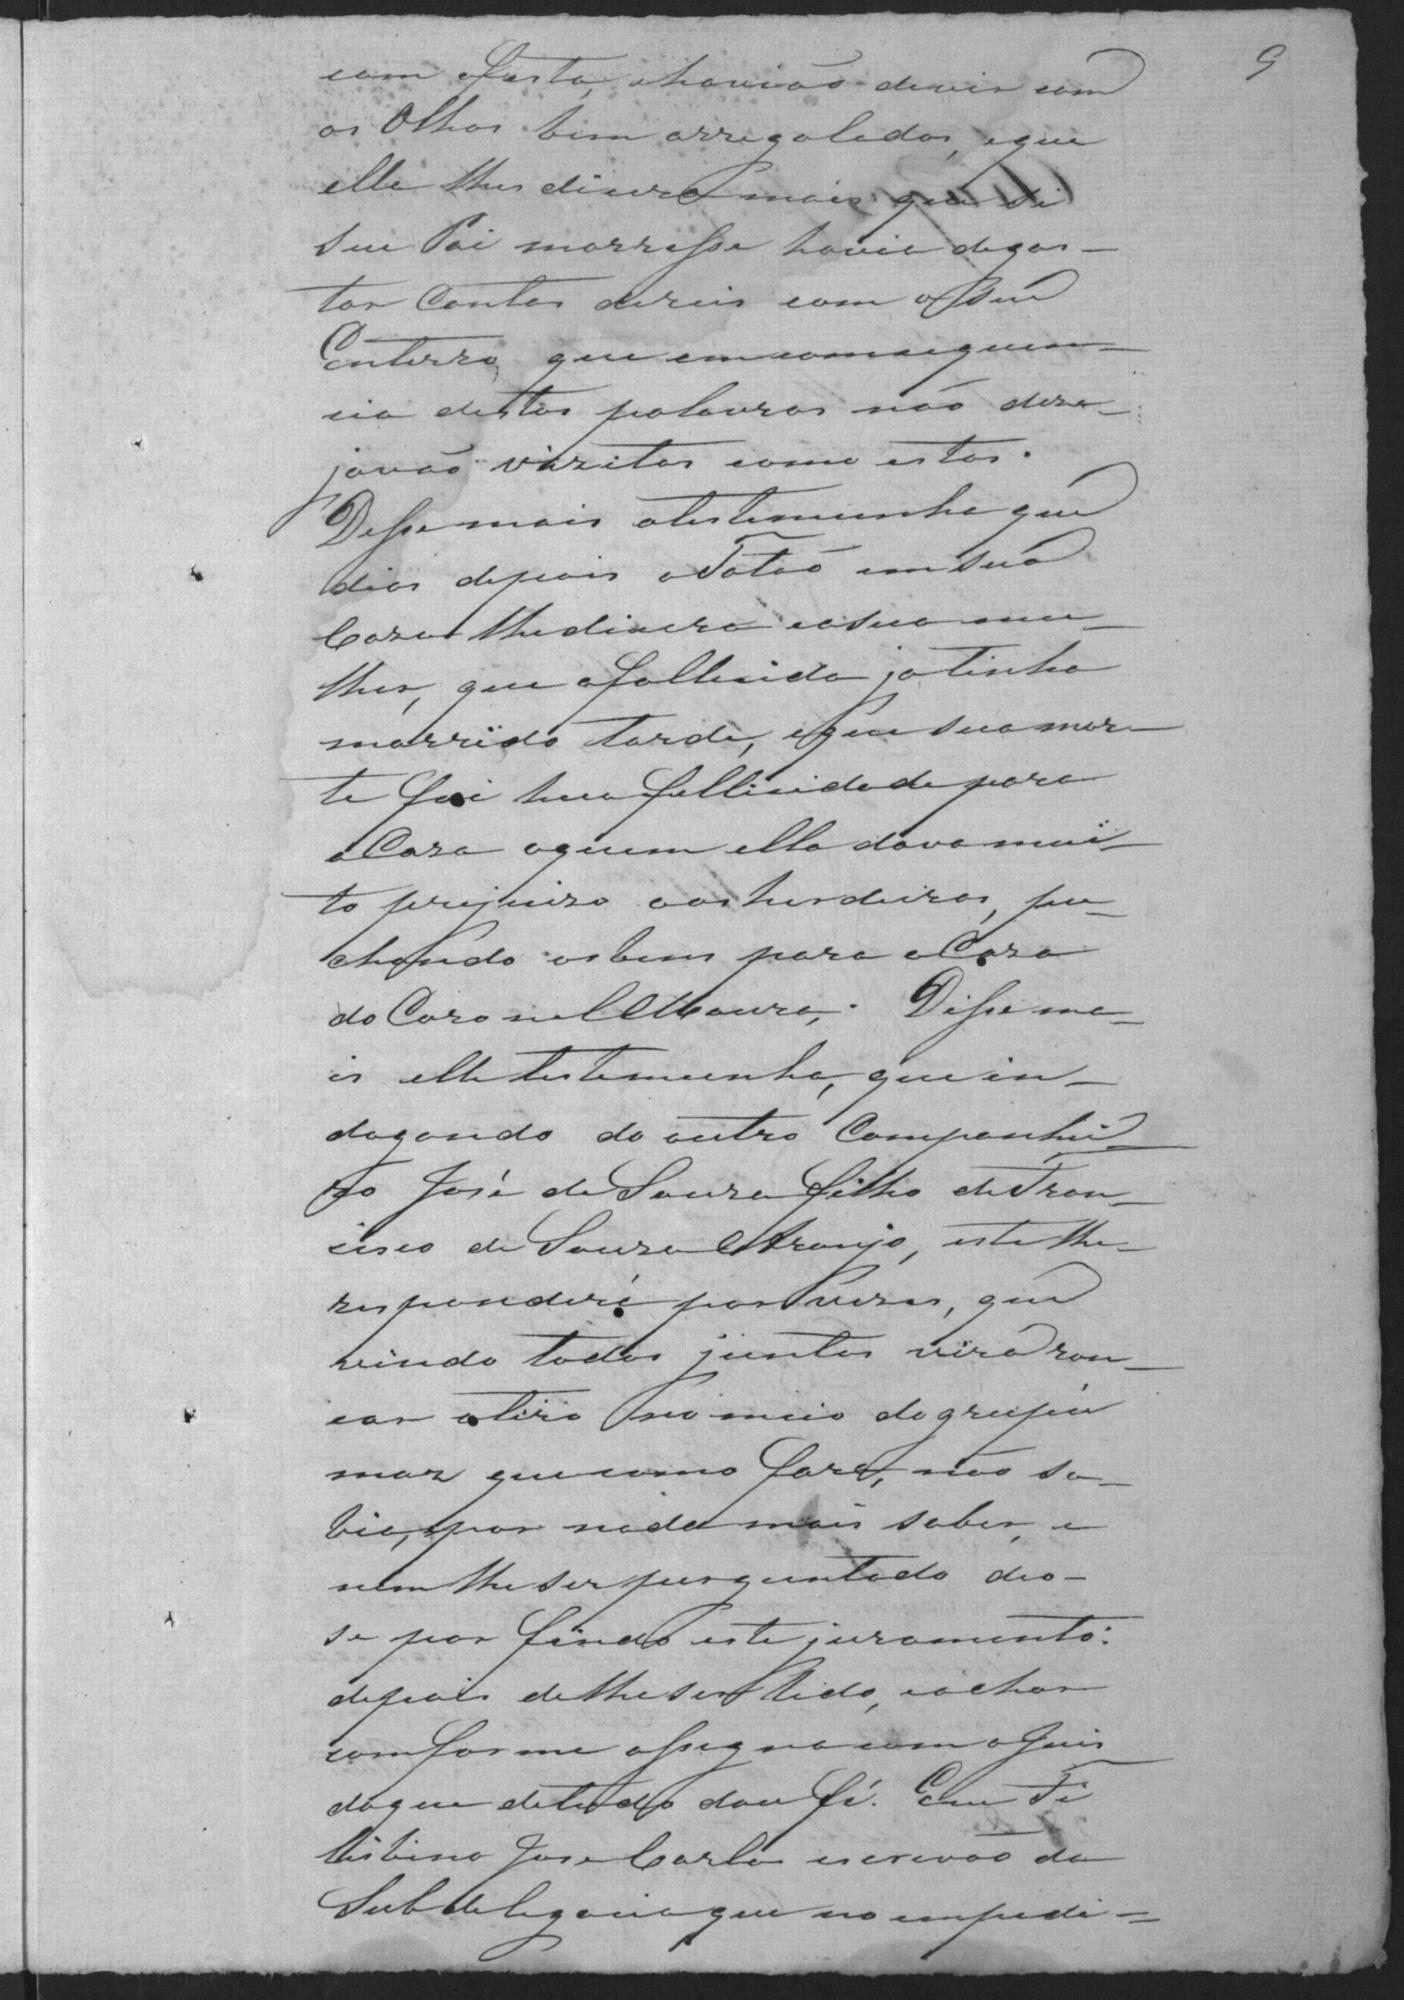 9
com festa, e havião devir com
os Olhos bem arregalados, eque
elle lhes dicera mais que si
seu Pai morresse havia degas-
tar Contos dereis com o seu
Enterro, que em comsequen-
cia destas palavras não dese-
javão vizitas como estas.
Disse mais atestemunha que
dias depois o Totão em sua
Caza lhe dicera easua mu-
lher, que afallicida ja tinha
morrido tarde, eque sua mor-
te foi hua fellicidade para
a Caza aquem ella dava mui-
to prejuizo aos herdeiros, pu-
chando osbens para a Caza
do Coronel Moura,. Disse ma-
is elle testemunha, que in-
dagando do outro Companhei
ro José de Souza filho de Fran-
cisco de Souza Araujo, este lhe
responderé por vezes, que
vindo todos juntos virão ron-
car otiro no meio do grupio
maz que como fora, não sa-
bia, e por nada mais saber, e
nem lhe ser perguntado deo-
se por findo este juramento:
depois delhe ser lido, e achar
comforme assigna com o Juis
do que de tudo dou fé. Eu Fi
lisbino Jose Carlos escrivão da
Subdelegacia que no impedi-